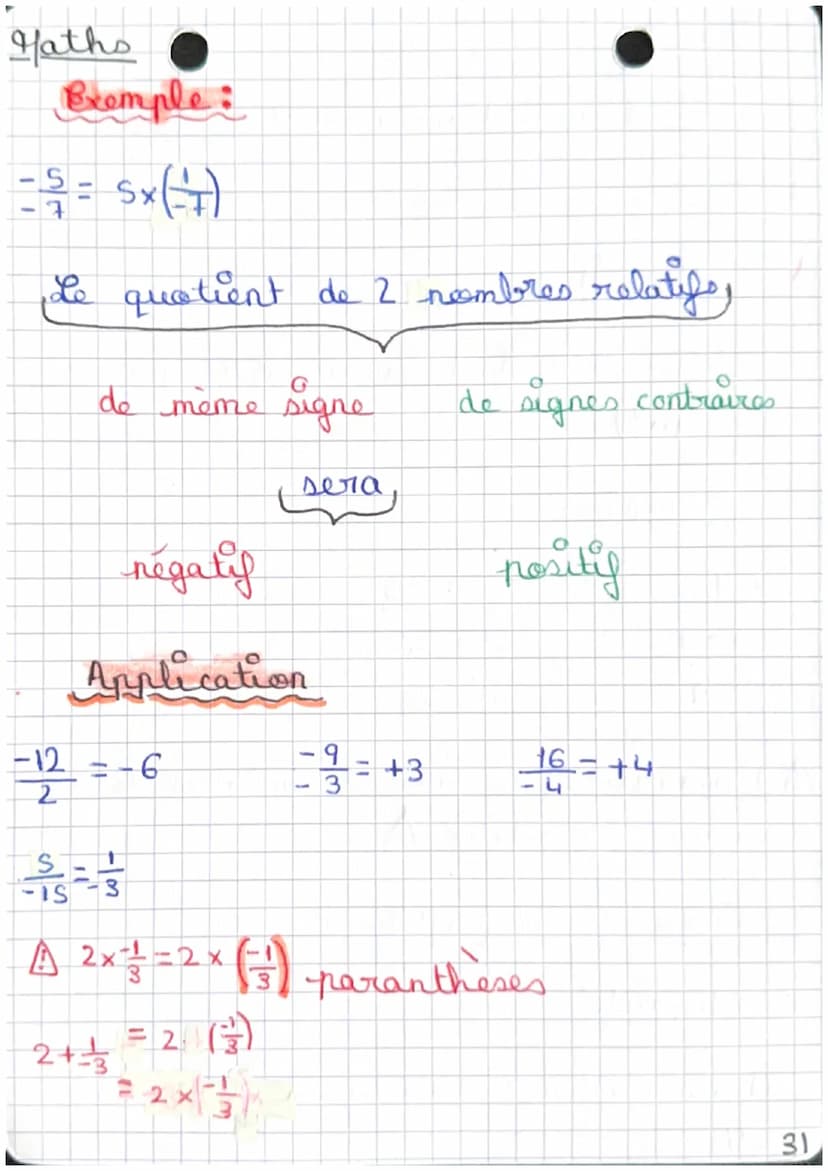 Maths
Exemple :
-5/-7 = 5×(1/-7)
Le quotient de 2 nombres relatifs
de même signe de signes contraires
sera
négatif positif
Application
-12/2 = -6 -9/-3 = +3 16/-4 = +4
5/-15 = 1/-3
⚠ 2×-1/3 = 2×(-1/3) paranthèses
2+1/-3 = 2 (-1/3)
= 2×(-1/3)
31